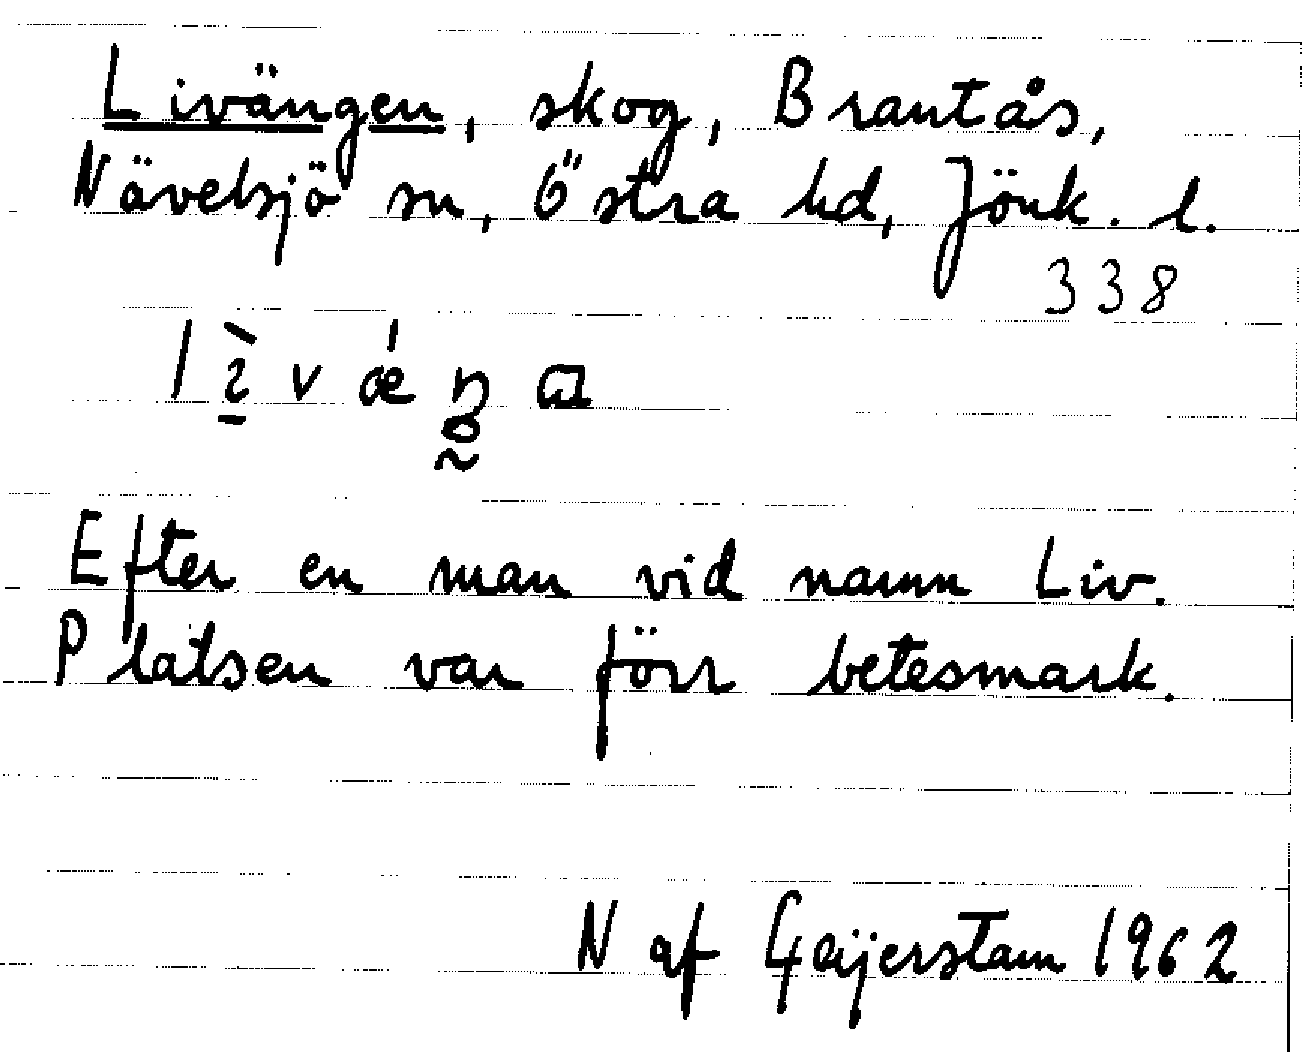 Livängen, skog, Brantås,
Nävelsjö sn, Östra hd, Jönk. l.
338
Efter en man vid namn Liv.
Platsen var förr betesmark.
N af Geijerstam 1962